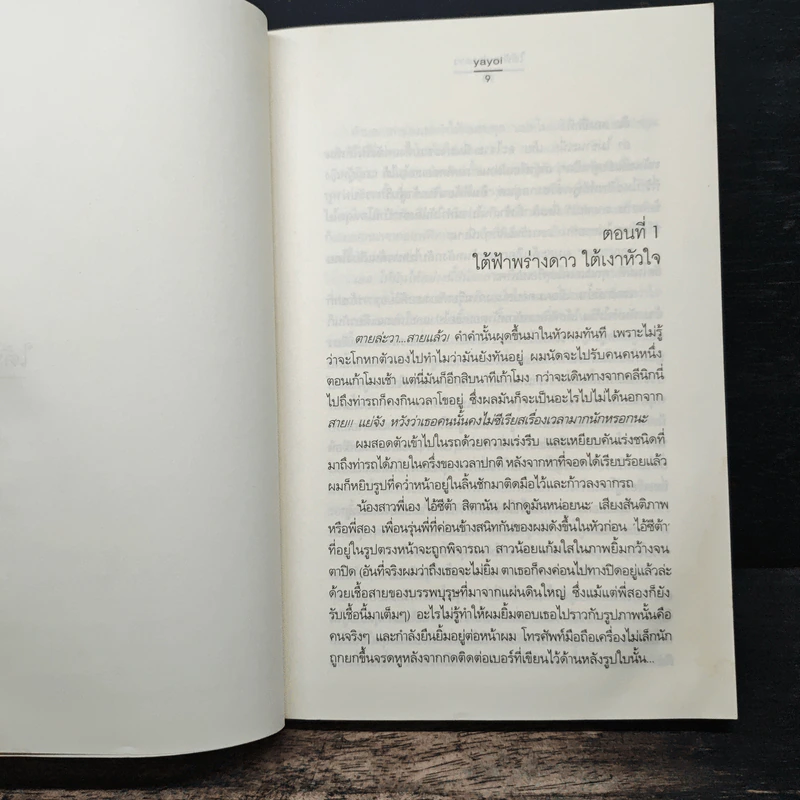 yayoi
9
ตอนที่ 1
ใต้ฟ้าพร่างดาว ใต้เงาหัวใจ
ตายล่ะวา...สายแล้ว! คำคำนั้นผุดขึ้นมาในหัวผมทันที เพราะไม่รู้
ว่าจะโกหกตัวเองไปทำไมว่ามันยังทันอยู่ ผมนัดจะไปรับคนคนหนึ่ง
ตอนเก้าโมงเช้า แต่นี่มันก็อีกสิบนาทีเก้าโมง กว่าจะเดินทางจากคลีนิกนี่
ไปถึงท่ารถก็คงกินเวลาโขอยู่ ซึ่งผลมันก็จะเป็นอะไรไปไม่ได้นอกจาก
สาย!! แย่จัง หวังว่าเธอคนนั้นคงไม่ซีเรียสเรื่องเวลามากนักหรอกนะ
ผมสอดตัวเข้าไปในรถด้วยความเร่งรีบ และเหยียบคันเร่งชนิดที่
มาถึงท่ารถได้ภายในครึ่งของเวลาปกติ หลังจากหาที่จอดได้เรียบร้อยแล้ว
ผมก็หยิบรูปที่คว่ำหน้าอยู่ในลิ้นชักมาติดมือไว้และก้าวลงจากรถ
น้องสาวพี่เอง ไอ้ซีต้า สิตานัน ฝากดูมันหน่อยนะ' เสียงสันติภาพ
หรือพี่สอง เพื่อนรุ่นพี่ที่ค่อนข้างสนิทกันของผมดังขึ้นในหัวก่อน 'ไอ้ซีต้า'
ที่อยู่ในรูปตรงหน้าจะถูกพิจารณา สาวน้อยแก้มใสในภาพยิ้มกว้างจน
ตาปิด (อันที่จริงผมว่าถึงเธอจะไม่ยิ้ม ตาเธอก็คงค่อนไปทางปิดอยู่แล้วล่ะ
ด้วยเชื้อสายของบรรพบุรุษที่มาจากแผ่นดินใหญ่ ซึ่งแม้แต่พี่สองก็ยัง
รับเชื้อนี้มาเต็มๆ) อะไรไม่รู้ทำให้ผมยิ้มตอบเธอไปราวกับรูปภาพนั้นคือ
คนจริงๆ และกำลังยืนยิ้มอยู่ต่อหน้าผม โทรศัพท์มือถือเครื่องไม่เล็กนัก
ถูกยกขึ้นจรดหูหลังจากกดติดต่อเบอร์ที่เขียนไว้ด้านหลังรูปใบนั้น...